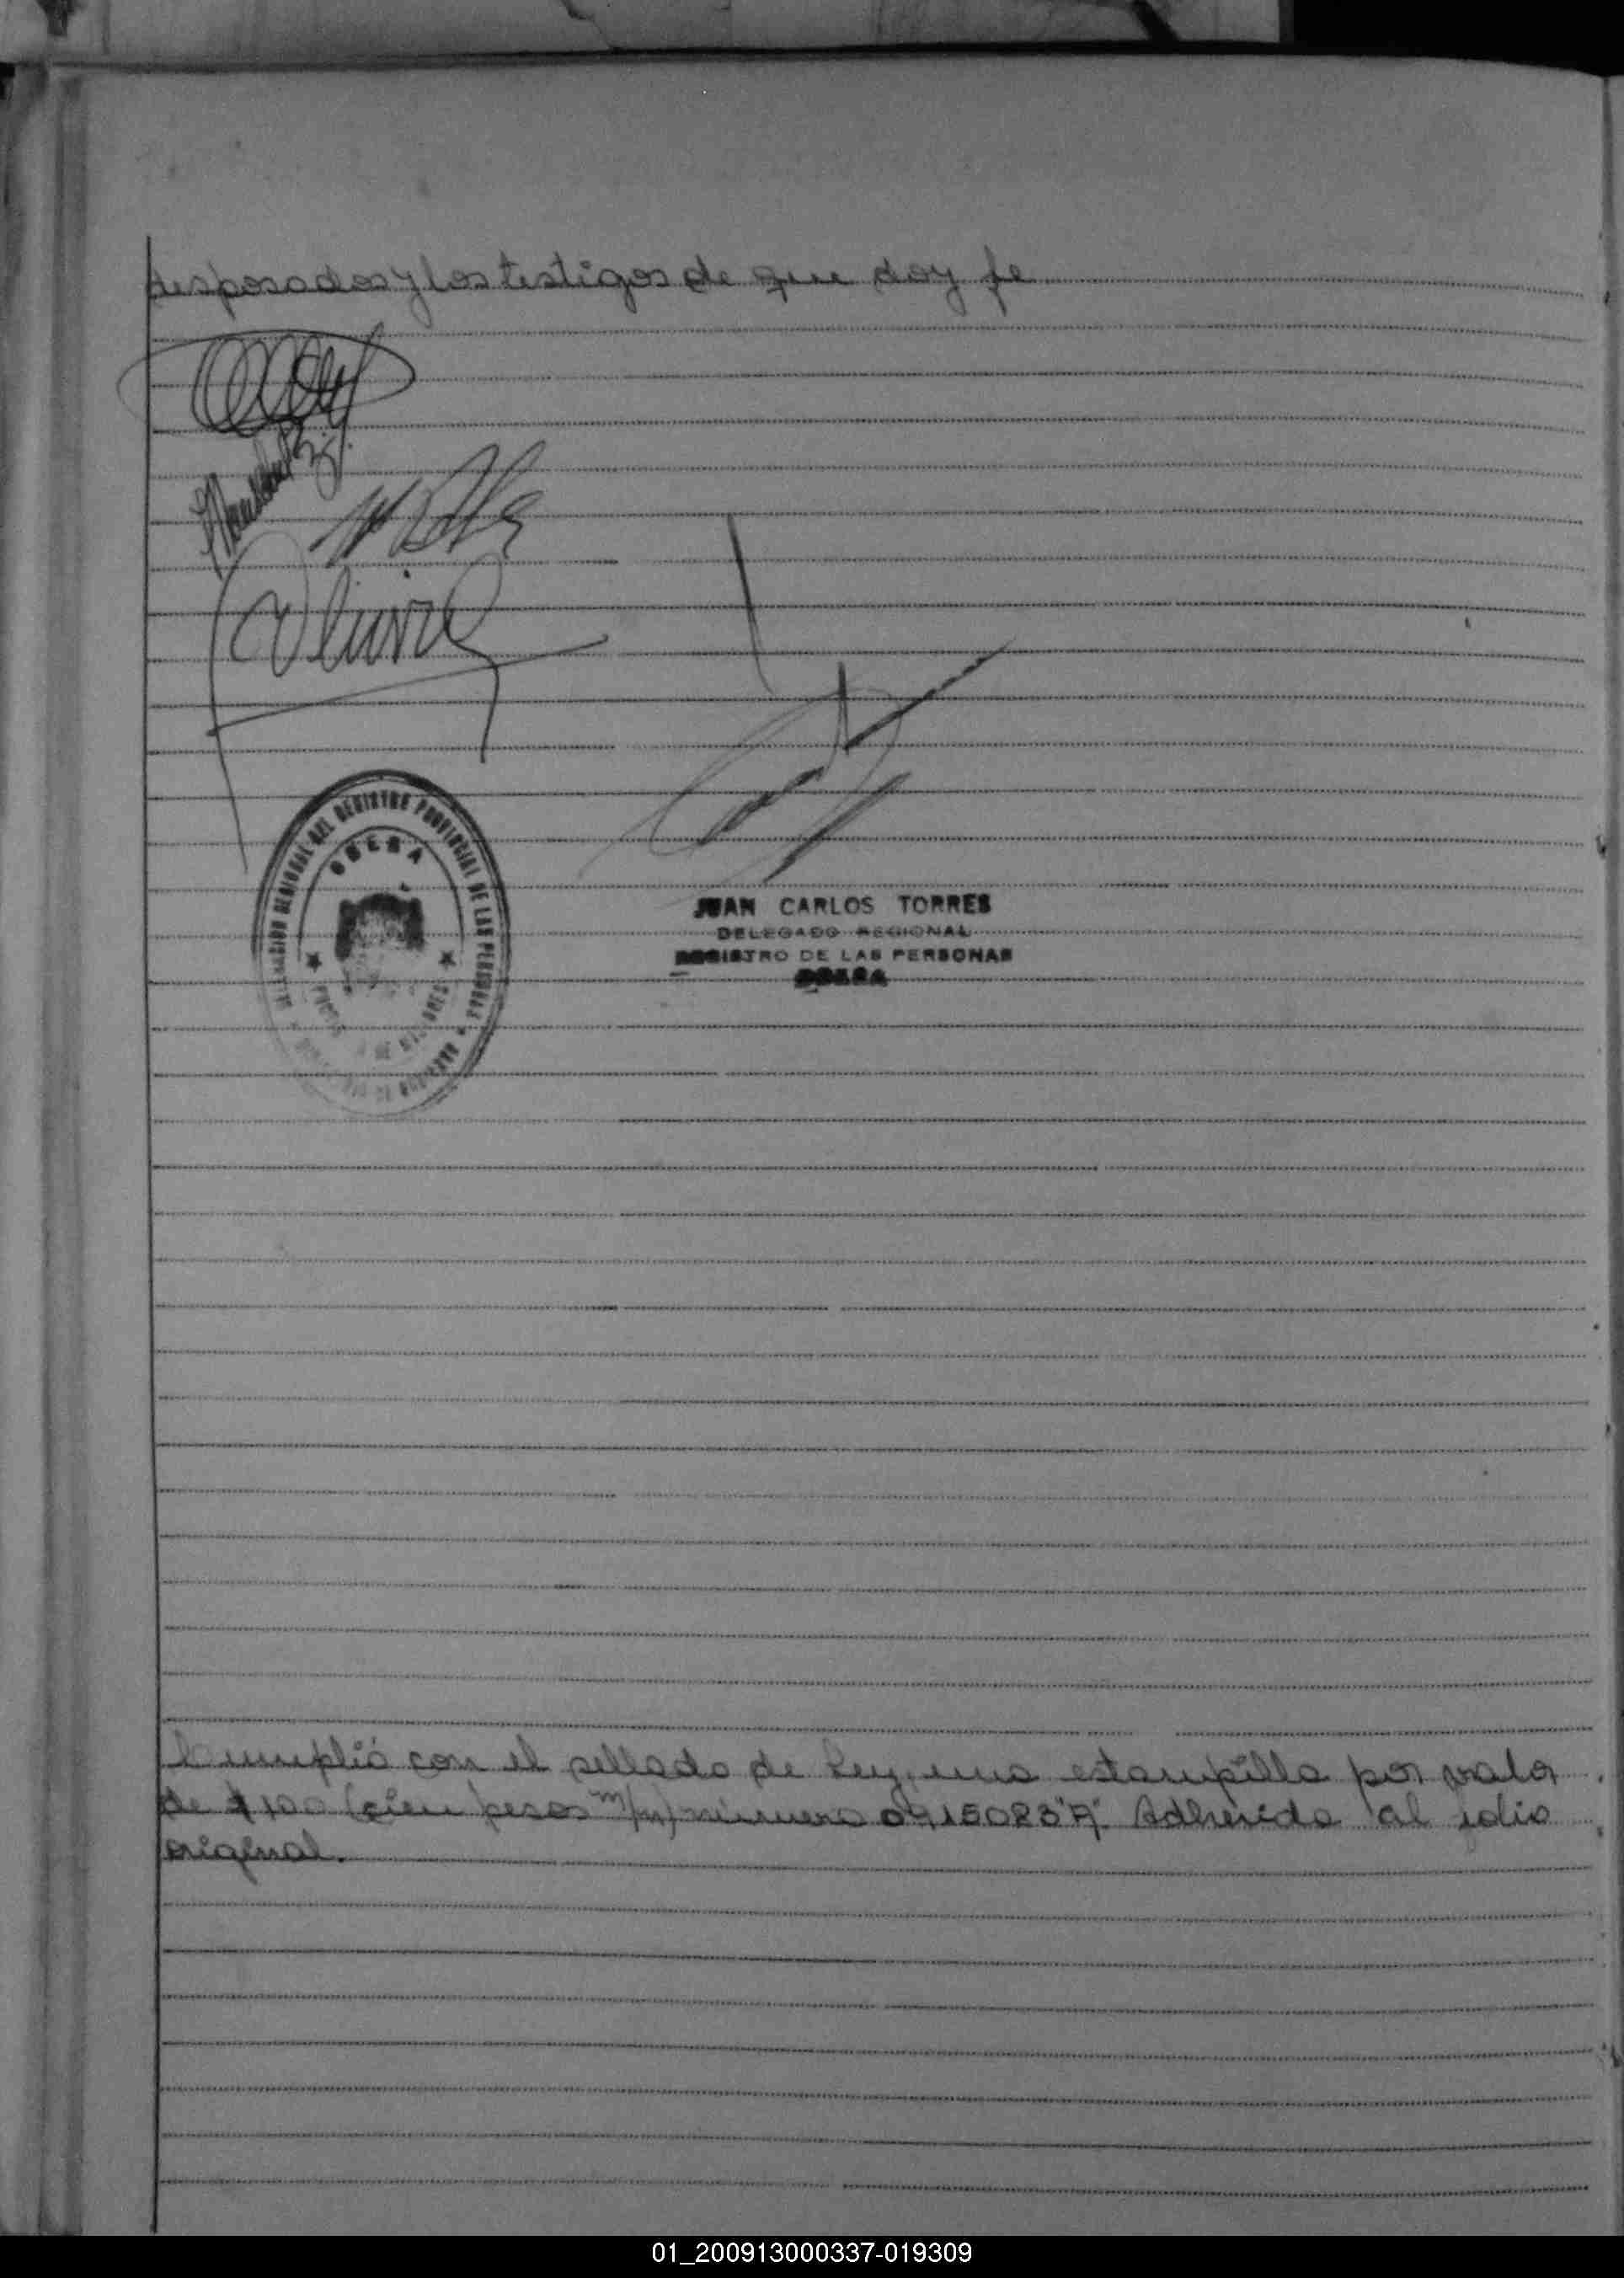 desposados y los testigos de que doy fe
DELEGACION REGIONAL DEL REGISTRO PROVINCIAL DE LAS PERSONAS
OBERA
JUAN CARLOS TORRES
DELEGADO REGIONAL
REGISTRO DE LAS PERSONAS
OBERA
Cumplió con el sellado de Ley, una estampilla por valor
de $ 100 (cien pesos m/n) número 0415083"A". Adherida al folio
original.
01_200913000337-019309